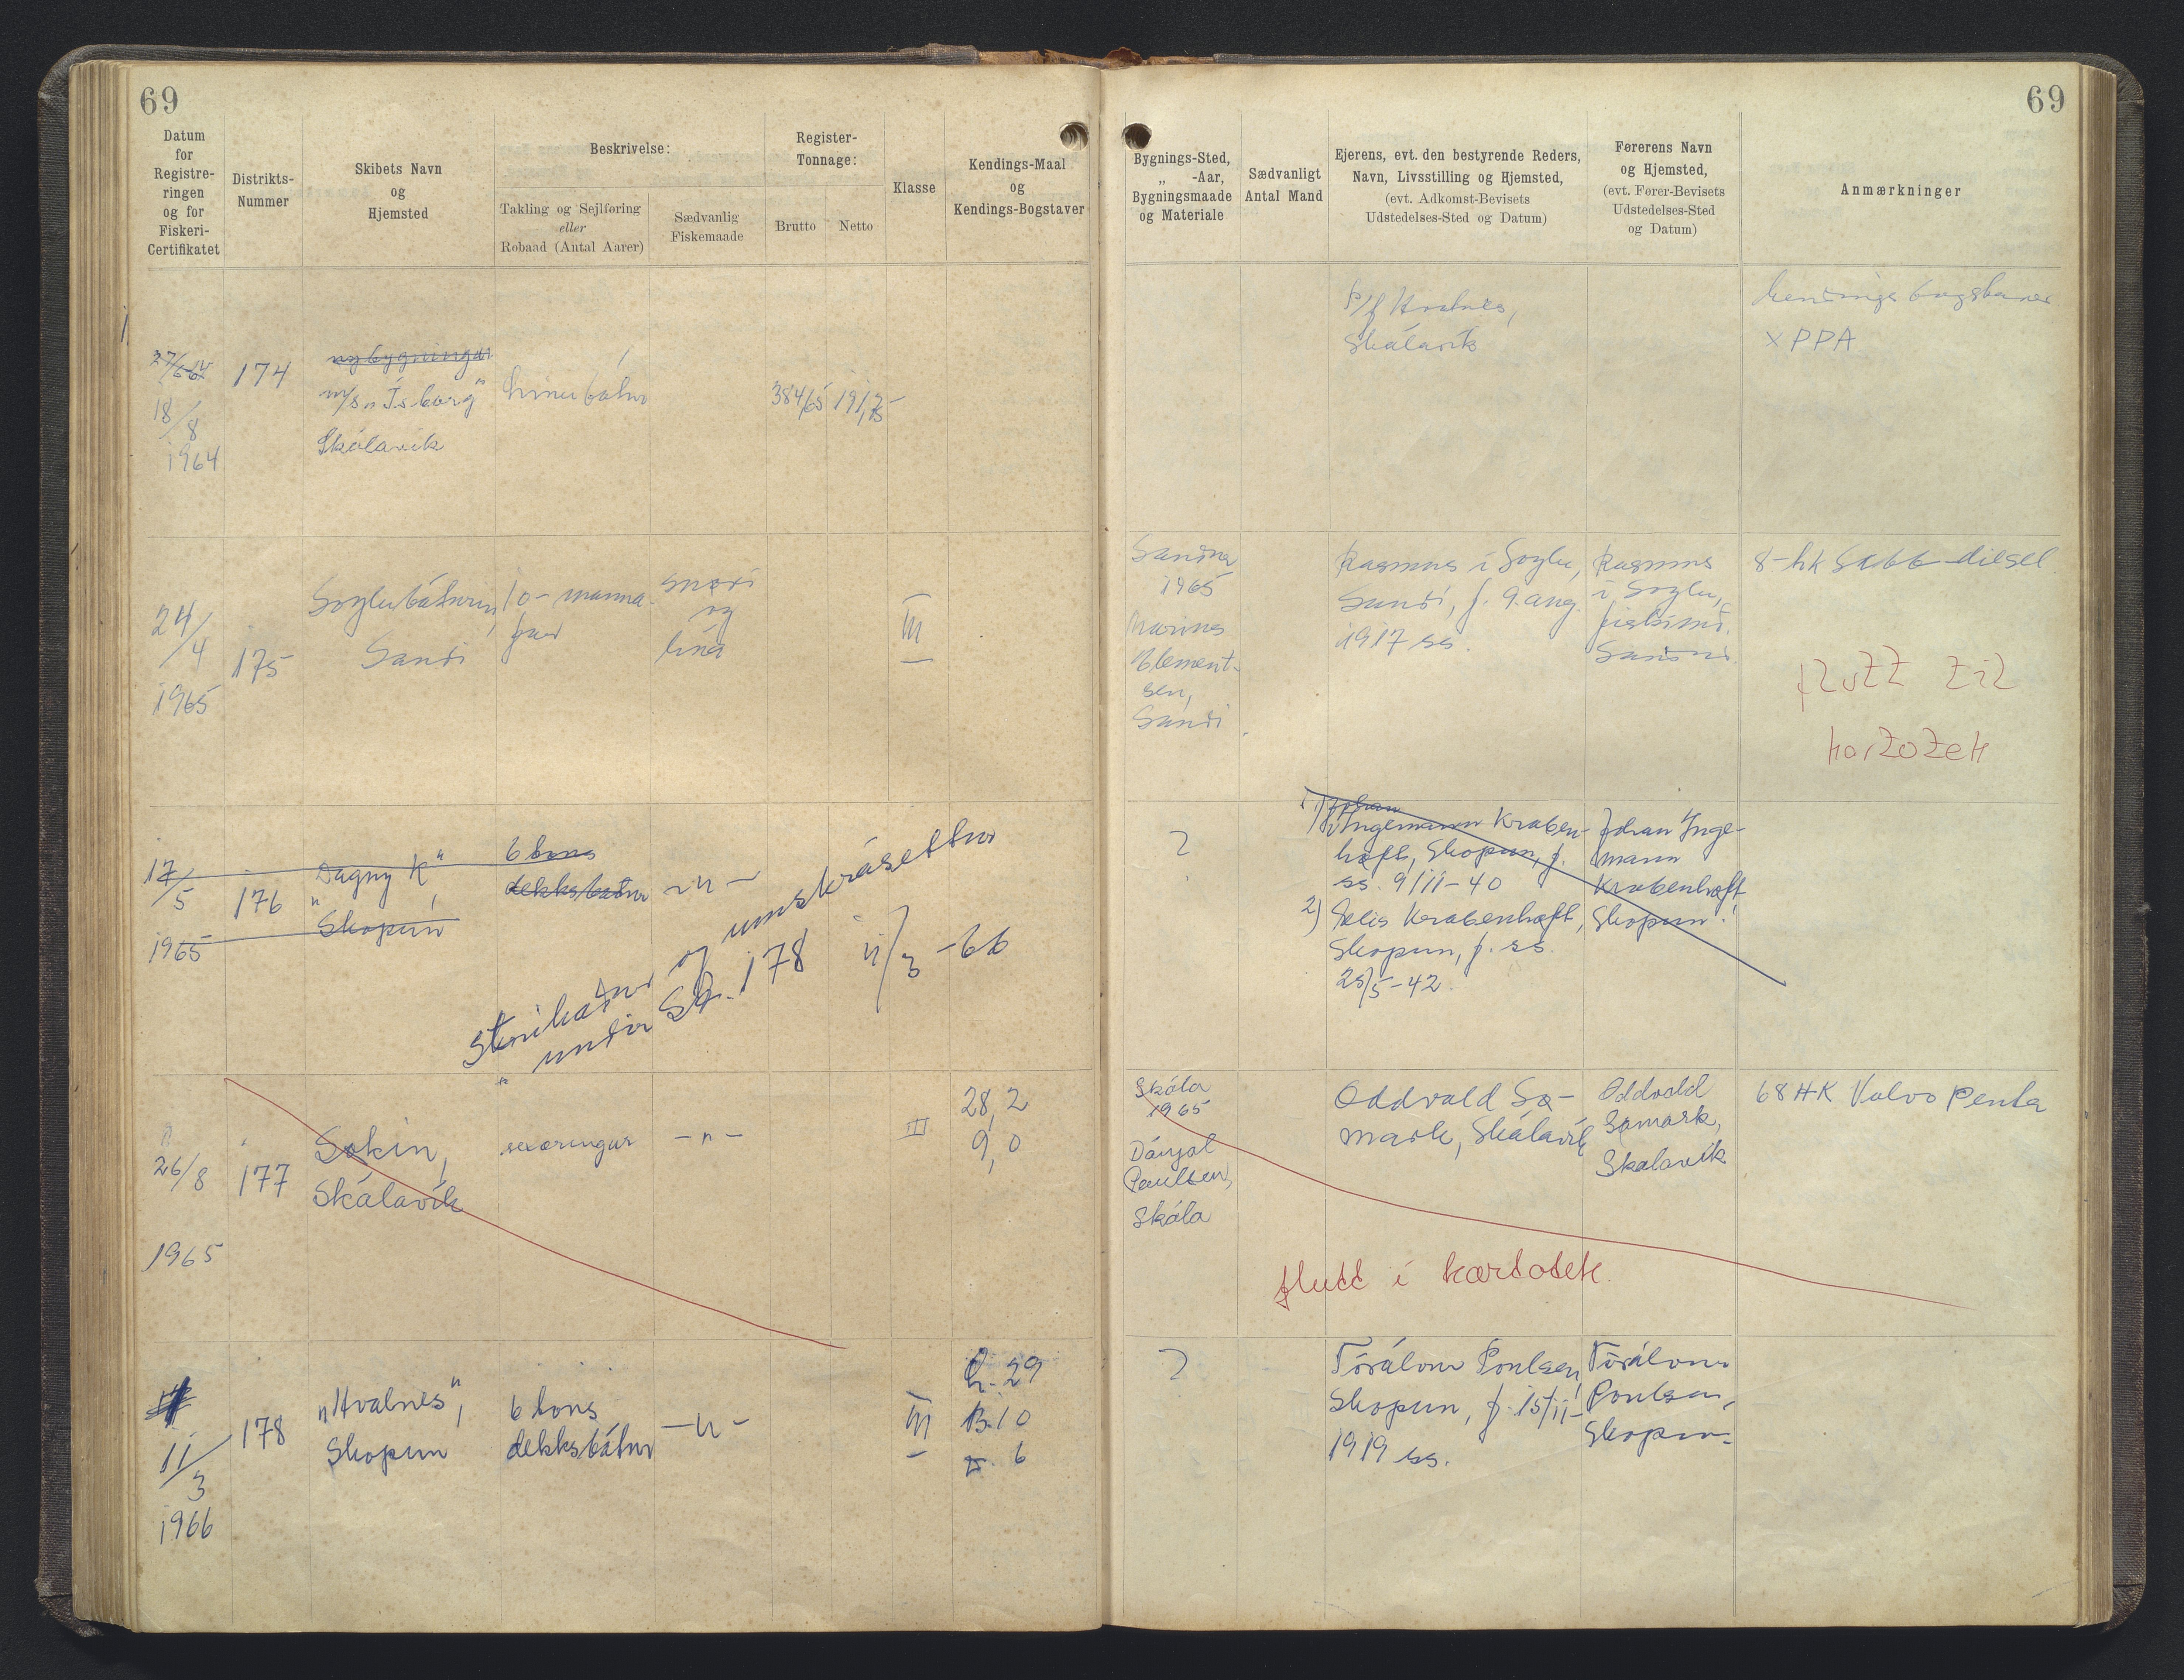 69
69
Datum
for
Registre-
ringen
og for
Fiskeri-
Certifikatet
Distrikts-
Nummer
Skibets Navn
og
Hjemsted
Beskrivelse:
Takling og Sejlføring
eller
Robaad (Antal Aarer)
Sædvanlig
Fiskemaade
Register-
Tonnage:
Brutto
Netto
Klasse
Kendings-Maal
og
Kendings-Bogstaver
Bygnings-Sted,
„ -Aar,
Bygningsmaade
og Materiale
Sædvanligt
Antal Mand
Ejerens, evt. den bestyrende Reders,
Navn, Livsstilling og Hjemsted,
(evt. Adkomst-Bevisets
Udstedelses-Sted og Datum)
Førerens Navn
og Hjemsted,
(evt. Fører-Bevisets
Udstedelses-Sted
og Datum)
Anmærkninger
18/8
1964
174
nybygningur
m/s „Ísborg"
Skálavík
línubátur
384/65
P/f Hvalnes,
Skálavík
XPPA
24/4
1965
175
Soylubáturin,
Sandi
10-manna-
far
snøri
og
lína
III
Sandur
1965
Marius
Clement-
sen,
Sandi
Rasmus í Soylu,
Sandi, f. 9. aug.
1917 ss.
Rasmus
í Soylu,
fiskimð.
Sandi
8-hk Sabb-diesel
flutt til
kartotek
17/5
1965
176
„Dagny K",
Skopun
6 tons
dekksbátur
-"-
Strikaður og umskrásettur
undir Sa. 178 11/3-66
?
1) Johan
Ingemann Kraben-
høft, Skopun, f.
ss. 9/11-40
2) Jelis Krabenhøft,
Skopun, f. ss.
25/5-42.
Johan Inge-
mann
Krabenhøft
Skopun.
26/8
1965
177
Søkin,
Skálavík
seксæringur
-"-
III
28,2
9,0
Skála
1965
Dánjal
Paulsen,
Skála
Oddvald Sø-
mark, Skálavík
Oddvald
Sømark,
Skálavík
68 HK Volvo Penta
flutt í kartotek.
11/3
1966
178
„Hvalnes",
Skopun
6 tons
dekksbátur
-"-
III
L. 29
B. 10
D. 6
?
Tórálvur Poulsen,
Skopun, f. 15/11-
1919 ss.
Tórálvur
Poulsen,
Skopun.